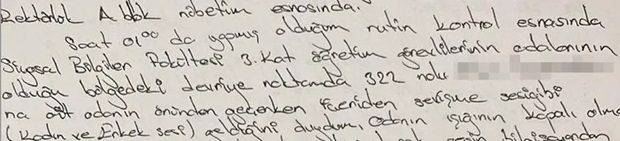 Rektörlük A blok nöbetim esnasında.
Saat 01⁰⁰ da yapmış olduğum rutin kontrol esnasında
Siyasal Bilgiler Fakültesi 3. Kat öğretim görevlilerinin odalarının
olduğu bölgedeki devriye noktamda 322 nolu
na ait odanın önünden geçerken içeriden sevişme sesi gibi
(Kadın ve Erkek sesi) geldiğini duydum, odanın ışığının kapalı olma